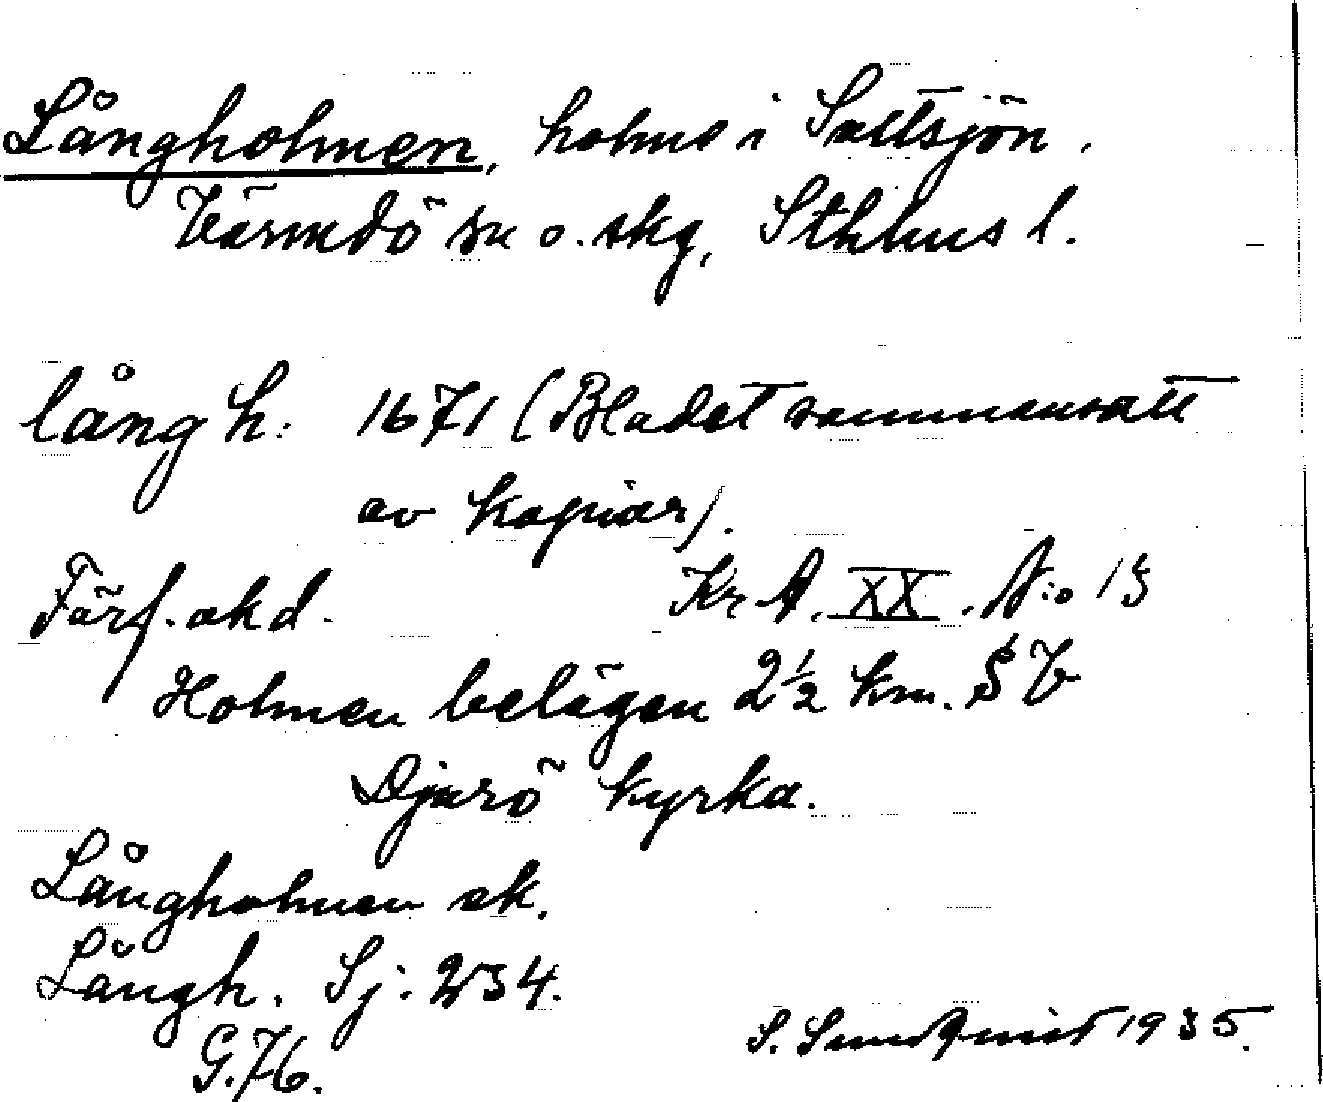 Långholmen, holme i Saltsjön.
Värmdö sn o. skg, Sthlms l.
lång h: 1671 (Bladet sammansatt
av kopior).
Färf. akd. Kr A. XX. N:o 15
Holmen belägen 2 1/2 km. S V
Djurö kyrka.
Långholmen ek.
Långh. Sj: 234.
G. 76.
S. Sundquist 1935.